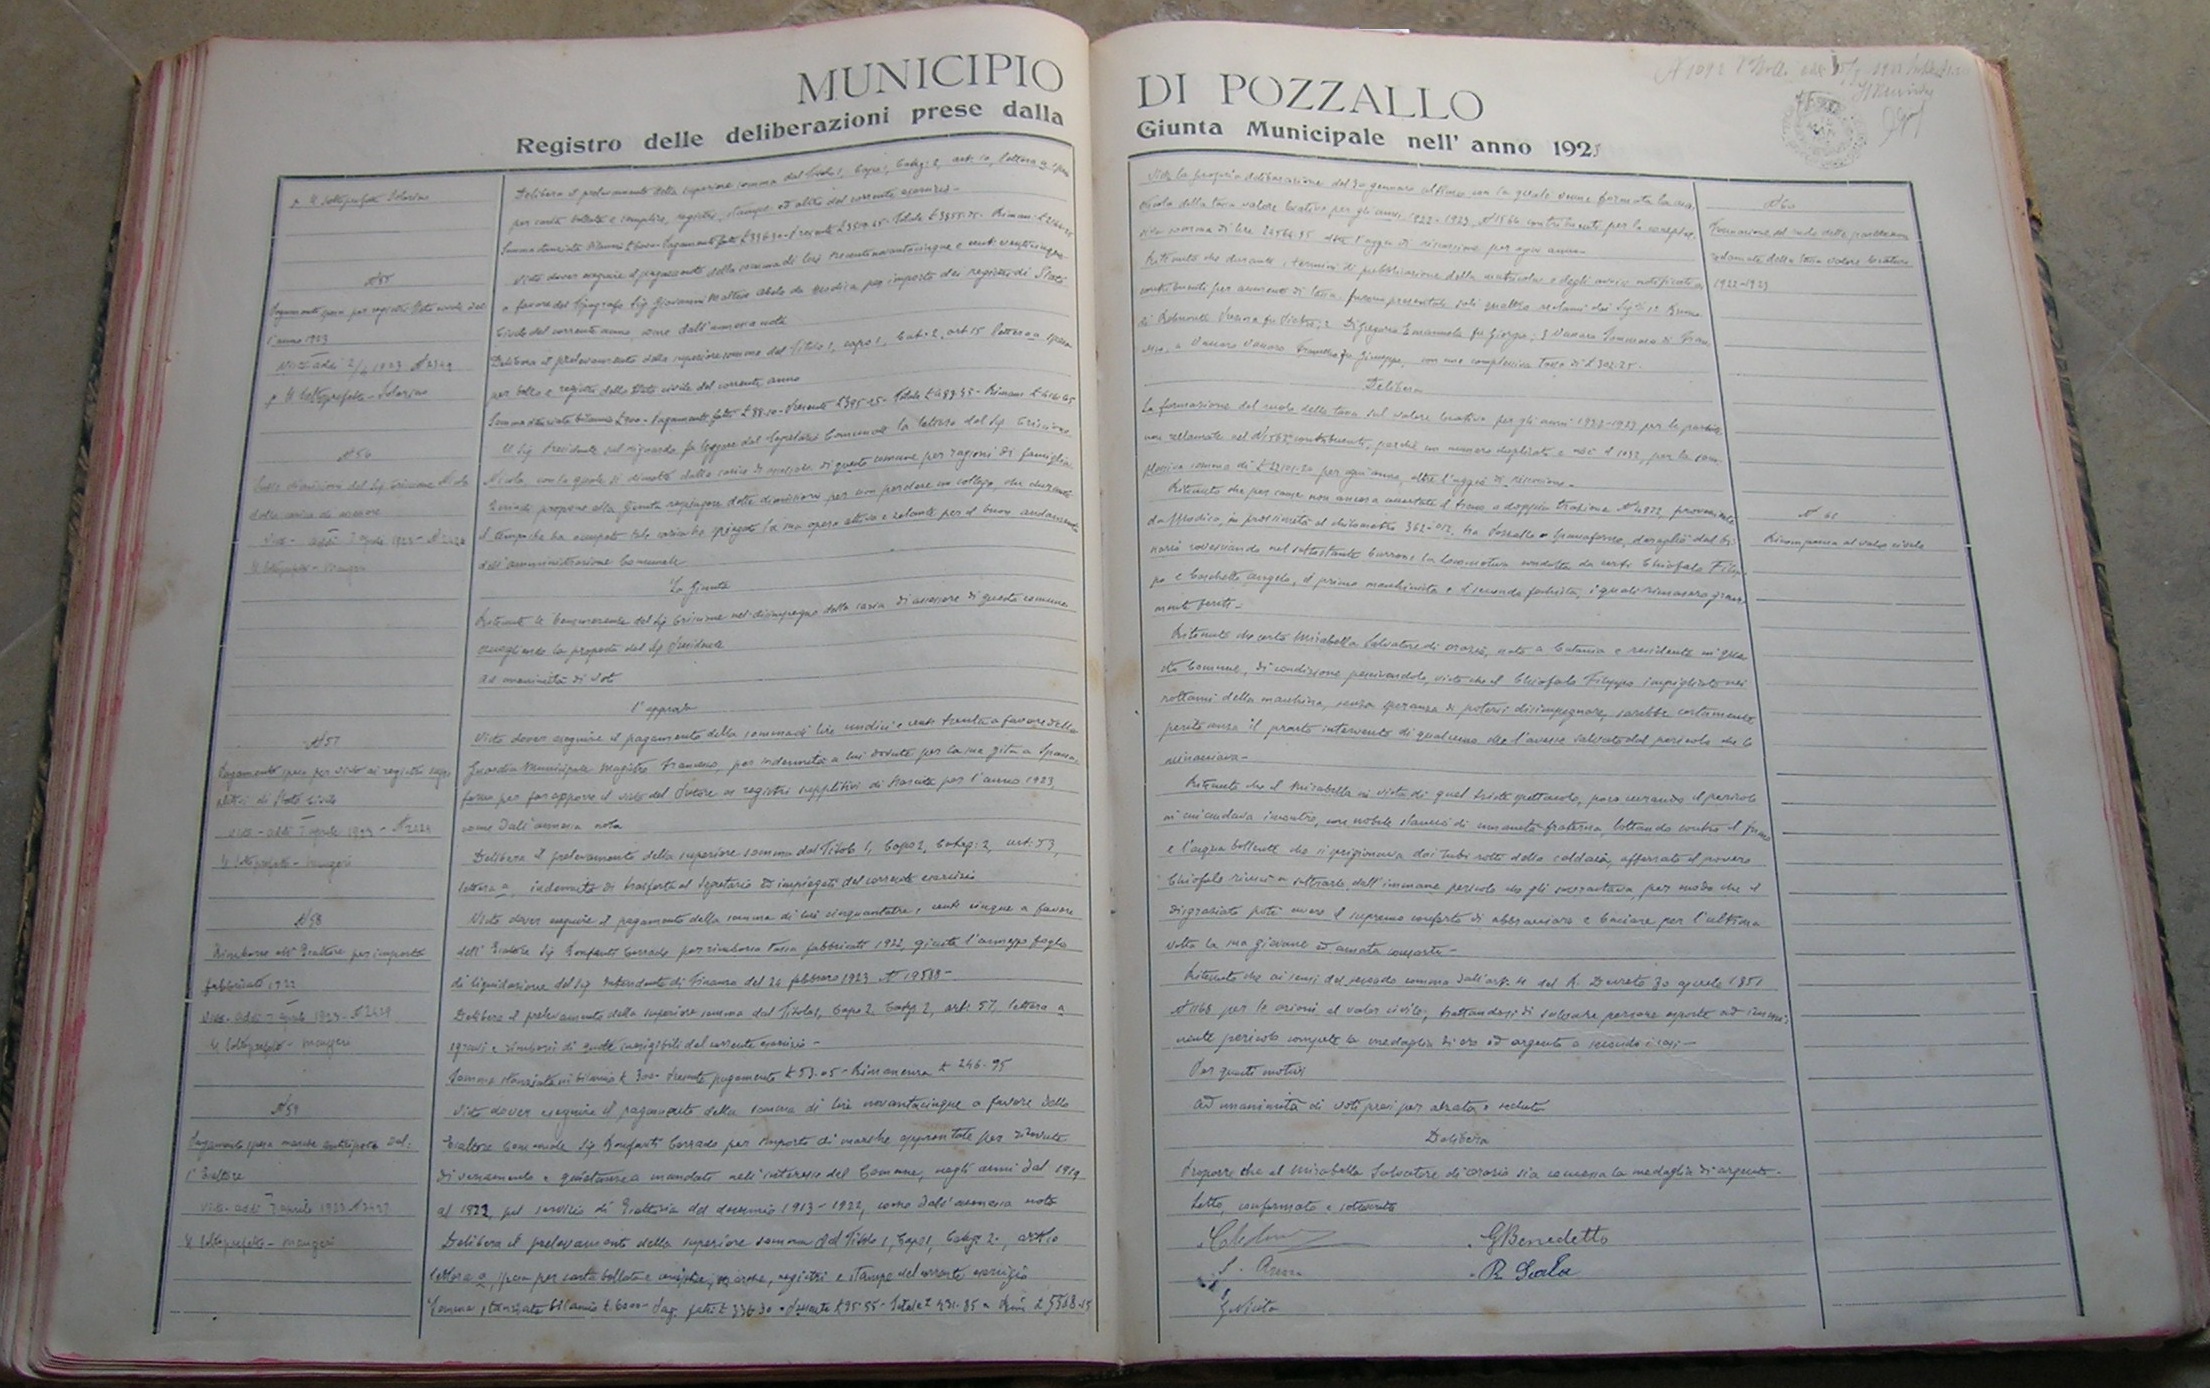 MUNICIPIO DI POZZALLO
Registro delle deliberazioni prese dalla Giunta Municipale nell' anno 1923
p. Il Sottoprefetto
N 55
l'anno 1923
Visto addì 2/4 1923 N 2349
p. Il Sottoprefetto
N 56
della carica di assessore
Visto - addì 7 aprile 1923 - N 2428
Il Sottoprefetto - Maugeri
N 57
Pagamento spesa per visto ai registri
di Stato Civile
Visto - addì 7 aprile 1923 - N
Il Sottoprefetto - Maugeri
N 58
Rimborso all' Esattore per imposta
fabbricati 1922
Visto - addì 7 aprile 1923 - N 2429
Il Sottoprefetto - Maugeri
N 59
Pagamento spesa marche anticipate dal-
l'Esattore
Visto - addì 7 aprile 1923 N 2427
Il Sottoprefetto - Maugeri
Delibera il prelevamento della superiore somma dal Titolo 1, Capo 1, Categ: 2, art: 10, lettera a, spesa
per carta bollata e semplice, registri, stampe ed altro del corrente esercizio -
Visto dover eseguire il pagamento della somma di lire trecentonovantacinque e centi venticinque
a favore del Tipografo Sig Giovanni Matteo da Modica per importo dei registri di Stato
Civile del corrente anno, come dall'annessa nota
Delibera il prelevamento della superiore somma dal Titolo 1, capo 1, Cat: 2, art 15 lettera a spesa
per bollo e registri dello Stato civile del corrente anno
Il Sig Presidente sul riguardo fa leggere dal Segretario Comunale la lettera del Sig Criscione
Nicola, con la quale si dimette dalla carica di assessore di questo comune per ragioni di famiglia
propone alla Giunta respingere dette dimissioni per non perdere un collega, che durante
il tempo che ha occupato tale carica ha spiegato la sua opera attiva e zelante per il buon andamento
dell'amministrazione Comunale
La Giunta
Ritenute le benemerenze del Sig Criscione nel disimpegno della carica di assessore di questo comune
accogliendo la proposta del Sig Presidente
Ad unanimità di voti
l'approva
Visto dover eseguire il pagamento della somma di lire undici e centi trenta a favore della
Guardia Municipale Magistro Francesco, per indennità a lui dovuta per la sua gita a Spacca-
forno per far apporre il visto del Pretore ai registri suppletivi di Nascita per l'anno 1923,
come dall'annessa nota
Delibera il prelevamento della superiore somma dal Titolo 1, Capo 2, Categ: 2, art: 53,
lettera a, indennità di trasferta al Segretario ed impiegati del corrente esercizio
Visto dover eseguire il pagamento della somma di lire cinquantatre e centi cinque a favore
dell' Esattore Sig Bonfanti Corrado per rimborso tassa fabbricati 1922, giusta l'annesso foglio
di liquidazione del Sig Intendente di Finanza del 24 febbraio 1923 N 19589 -
Delibera il prelevamento della superiore somma dal Titolo 1, Capo 2, Categ 2, art: 57, lettera a
sgravi e rimborsi di quote inesigibili del corrente esercizio -
Somma stanziata in bilancio £ 300 - Presente pagamento £ 53.05 - Rimanenza £ 246.95
Visto dover eseguire il pagamento della somma di lire novantacinque a favore dello
Esattore Comunale Sig Bonfanti Corrado per importo di marche apprestate per
di versamento e quietanza a mandati nell'interesse del Comune, negli anni dal 1919
al 1922, pel servizio di Esattoria del decennio 1913 - 1922, come dall'annessa nota
Delibera il prelevamento della superiore somma dal Titolo 1, Capo 1, Categ: 2, art 10
lettera a, spesa per carta bollata e semplice, marche, registri e stampe del corrente esercizio
Somma stanziata bilancio £ 6000 - Pag. fatti £ 336.30 - Presente £ 95.55 - Totale £ 431.85 - Rim £ 5568.15
Vista la propria deliberazione del 30 gennaio ultimo con la quale venne formata la ma-
tricola della tassa valore locativo per gli anni 1922 - 1923 N 1566 contribuenti per la comples-
siva somma di lire 22504.35 oltre l'aggio di riscossione per ogni anno -
Ritenuto che durante i termini di pubblicazione della matricola e degli avvisi notificati ai
contribuenti per aumento di tassa furono presentati soli quattro reclami dai Sigri 1°
Di Gregorio Emanuela fu Giorgio; 3 Vaccaro Tommaso di Fran-
Giuseppe, con una complessiva tassa di £ 302.25 -
Delibera
La formazione del ruolo della tassa sul valore locativo per gli anni 1922-1923 per le partite
non reclamate nel N 1562 contribuenti, perchè un numero duplicato e cioè il 1032, per la com-
plessiva somma di £ 22101.20 per ogni anno, oltre l'aggio di riscossione -
Ritenuto che per cause non ancora accertate il treno a doppia trazione N 4972, proveniente
da Modica, in prossimità al chilometro 362-012, tra Pozzallo e Spaccaforno, deragliò dal bi-
nario rovesciando nel sottostante burrone la locomotiva condotta da certi Chiofalo Filip-
po e Angelo, il primo macchinista e il secondo fuochista, i quali rimasero grave-
mente feriti -
Ritenuto che certo Mirabella Salvatore di Orazio, nato a Catania e residente in que-
sto Comune, di condizione, visto che il Chiofalo Filippo impigliato nei
rottami della macchina, senza speranza di potersi disimpegnare, sarebbe certamente
perito senza il pronto intervento di qualcuno che l'avesse salvato dal pericolo che lo
minacciava -
Ritenuto che il Mirabella in vista di quel triste spettacolo, poco curando il pericolo
a cui andava incontro, con nobile slancio di umanità fraterna, lottando contro il fumo
e l'acqua bollente che si sprigionava dai tubi rotti della caldaia, afferrato il povero
Chiofalo riuscì a sottrarlo dall'immane pericolo che gli sovrastava, per modo che il
disgraziato potè avere il supremo conforto di abbracciare e baciare per l'ultima
volta la sua giovane ed amata consorte -
Ritenuto che ai sensi del secondo comma dall'art: 4 del R. Decreto 30 aprile 1851
N 1168 per le azioni al valor civile, trattandosi di salvare persone esposte ad immi-
nente pericolo compete la medaglia di oro od argento a secondo i casi -
Per questi motivi
Ad unanimità di voti presi per alzata e seduta
Delibera
Proporre che al Mirabella Salvatore di Orazio sia concessa la medaglia di argento -
Letto, confermato e sottoscritto
G Benedetto
R. Scala
N 60
Formazione del ruolo delle partite non
reclamate della tassa valore locativo
1922-1923
N 61
Ricompensa al valor civile